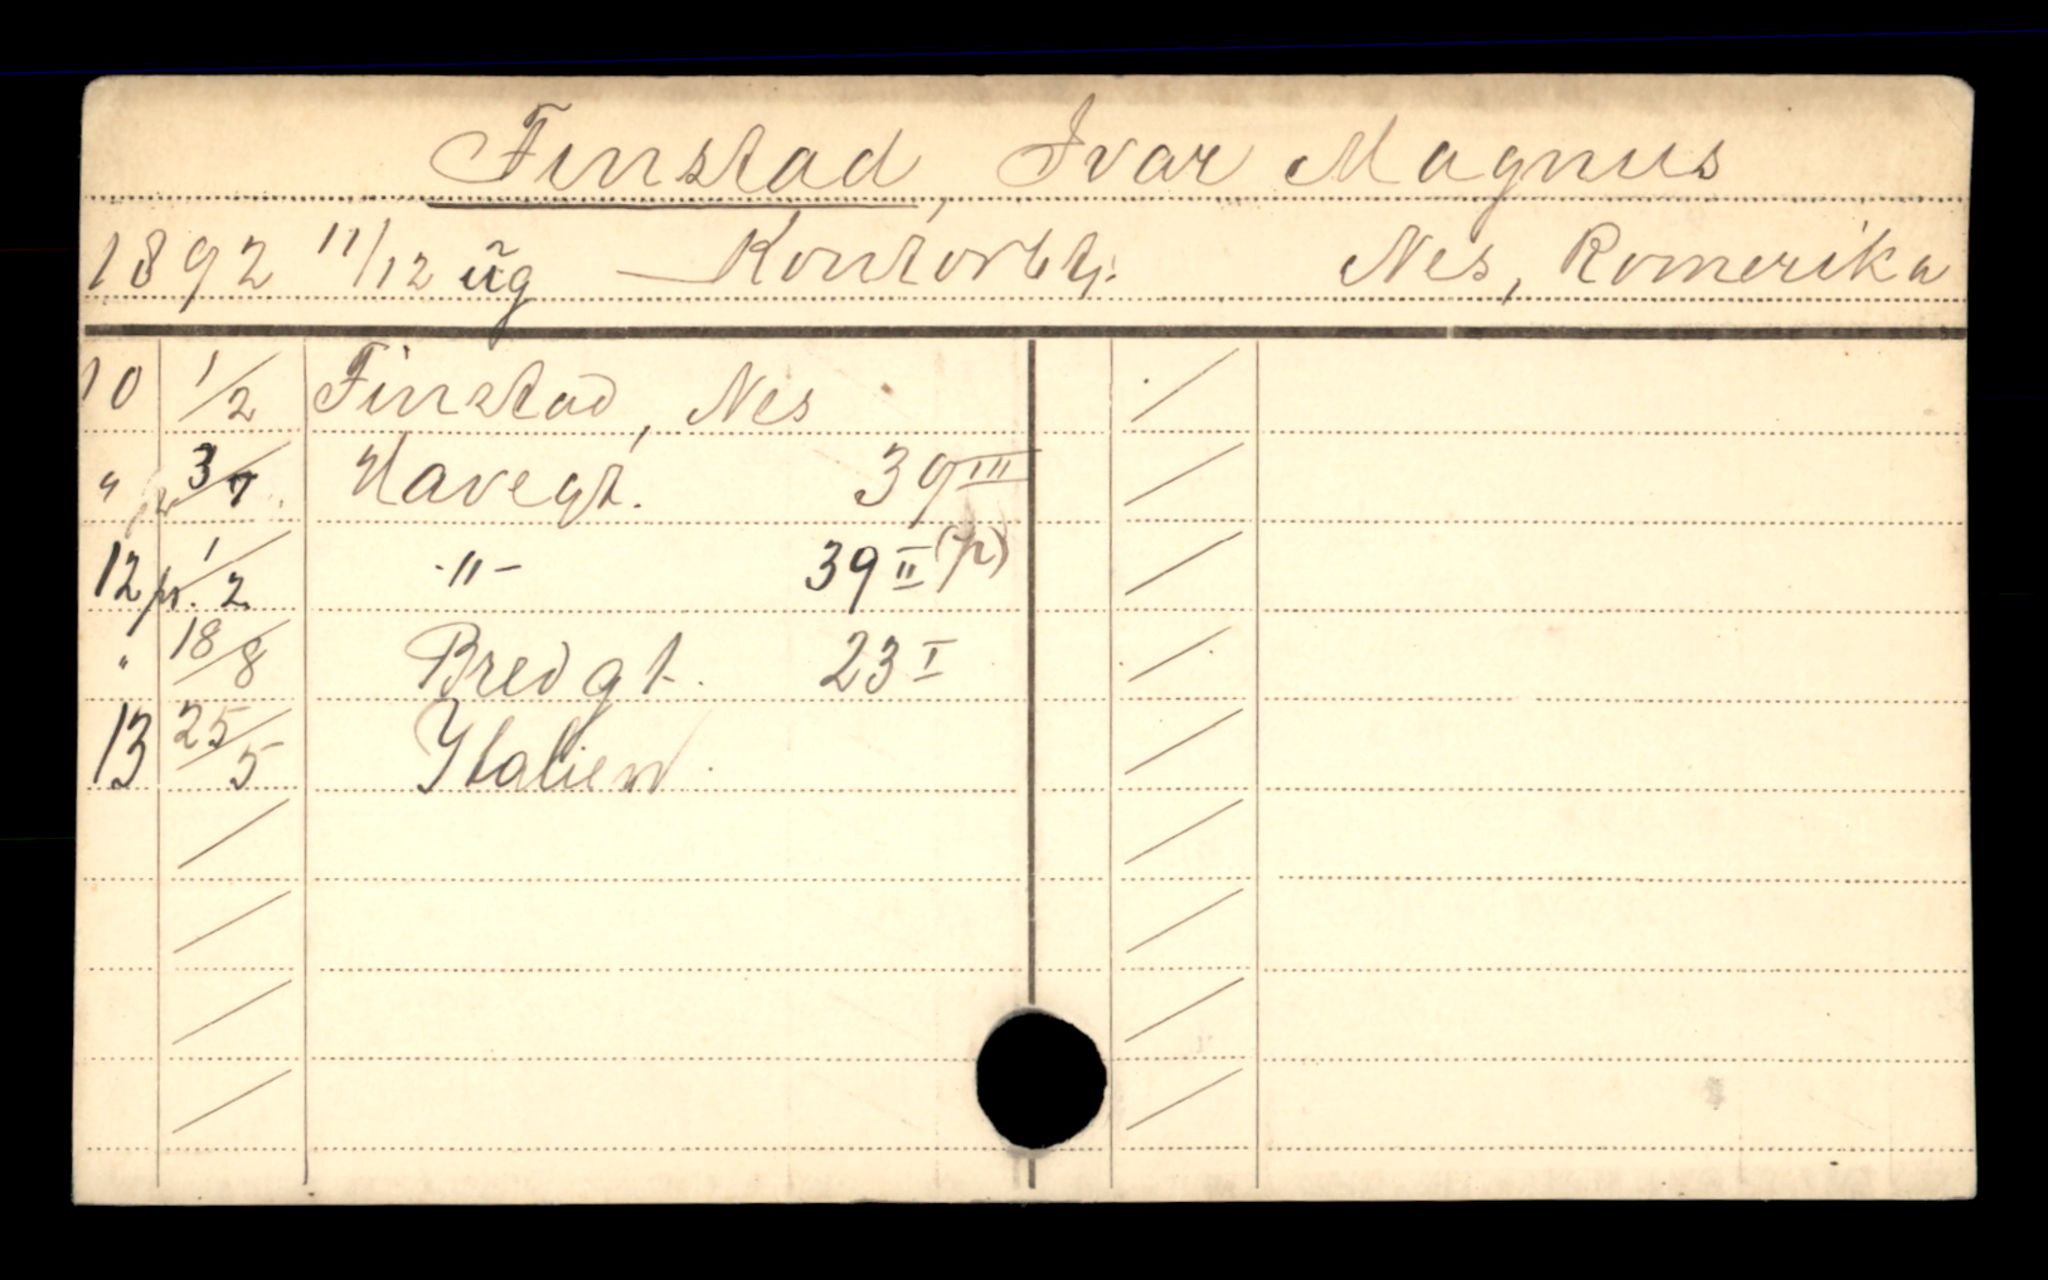 Finstad, Ivar Magnus
1892 11/12 ug Kontorbtj. Nes, Romerika
10 1/2 Finstad, Nes
" 3/7 Havegt. 39 III
12 pr. 1/2 -"- 39 II (p)
" 18/8 Bredgt. 23 I
13 25/5 Italien.